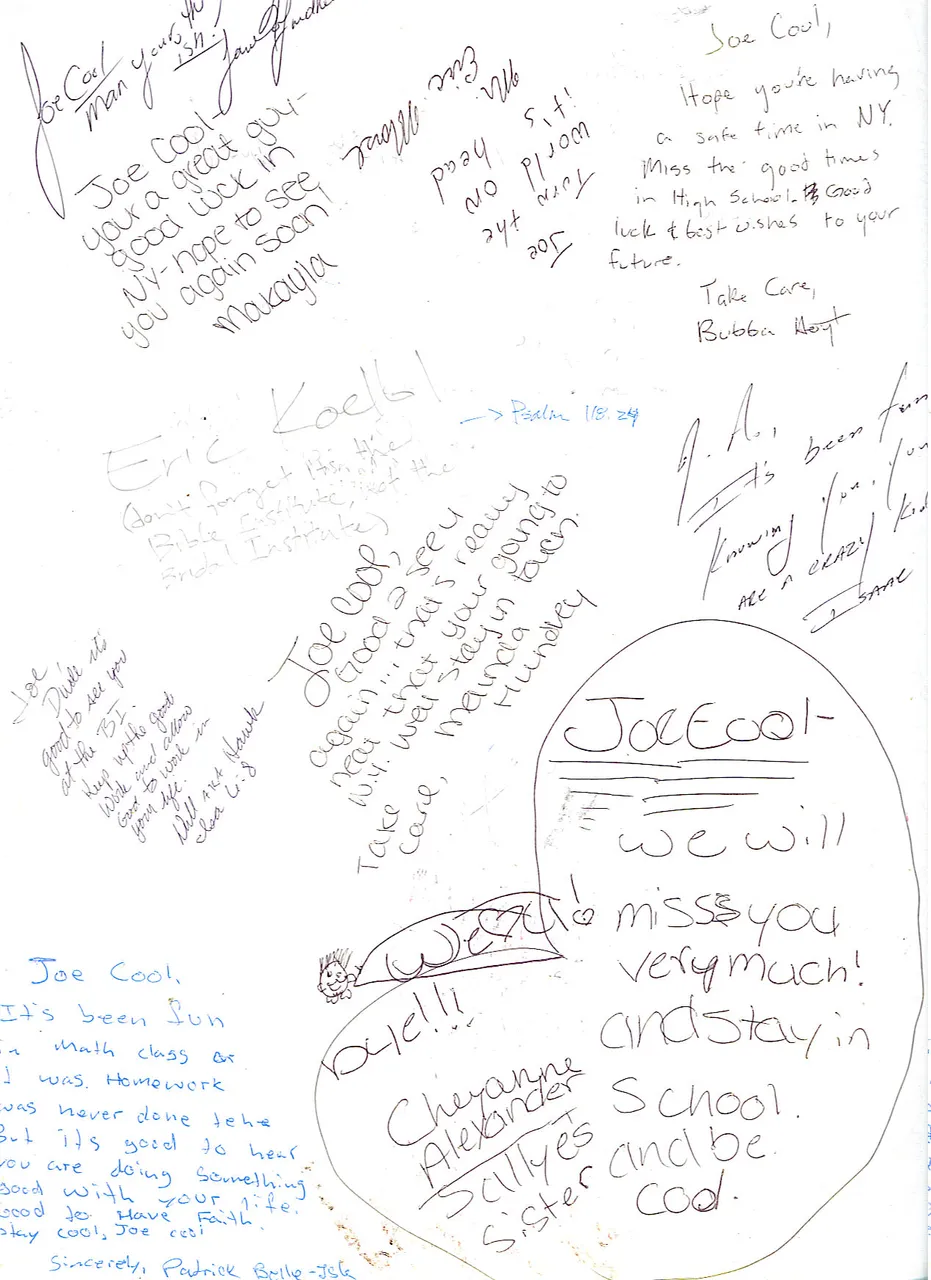 Joe Cool
Man your
ish!
Joe Cool-
your a great guy-
good luck in
NY-hope to see
you again soon!
Makayla
Joe
Turn the
world on
it's head
Eric
Joe Cool,
Hope you're having
a safe time in NY.
Miss the good times
in High School. Good
luck & best wishes to your
future.
Take Care,
Bubba Hoyt
Eric Koelbl
(don't forget its the
Bible Institute, not the
Bridal Institute)
-> Psalm 118:24
It's been fun
Knowing you. You
ARE A CRAZY Kid
Joe Cool,
Good 2 see y
again... that's really
neat that your going to
N.Y. Well stay in touch.
Take care,
Melinda
Hundley
Joe
Dude its
good to see you
at the BI.
Keep up the good
Work and allow
God to work in
your life.
Hawk
Joe Cool-
we will
miss you
very much!
and stay in
School.
and be
cool.
bye!!!
Cheyanne
Alexander
Sallye's
Sister
Joe Cool,
It's been fun
in math class or
I was. Homework
was never done tehe
But it's good to hear
you are doing something
good with your life.
Good to Have Faith.
stay cool, Joe cool
Sincerely, Patrick Belle-Isle